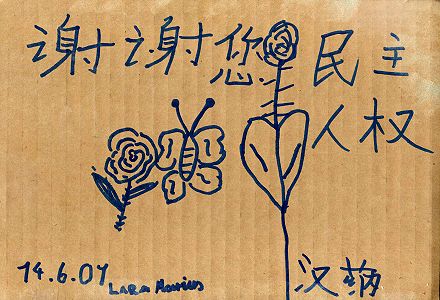 谢谢您 民主
人权
汉
14.6.07 Lara